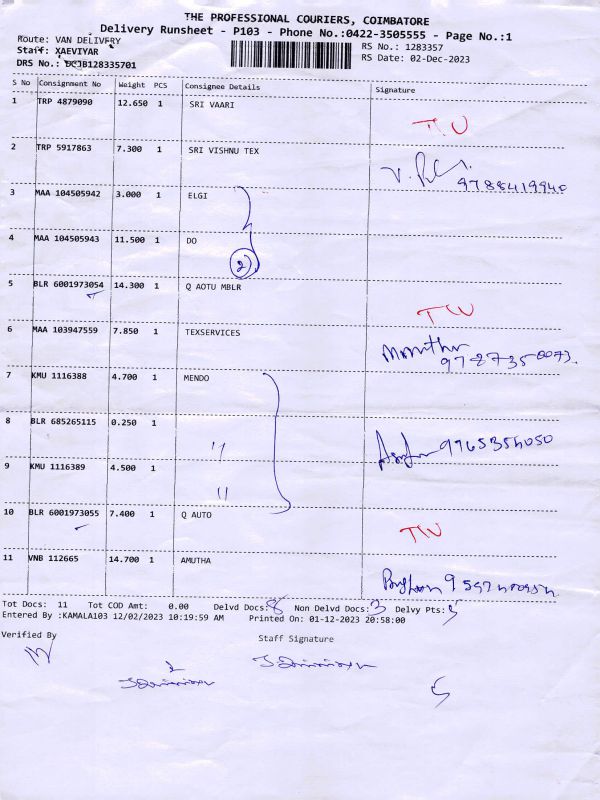 THE PROFESSIONAL COURIERS, COIMBATORE
Delivery Runsheet - P103 - Phone No.:0422-3505555 - Page No.:1
Route: VAN DELIVERY RS No.: 1283357
Staff: XAEVIYAR RS Date: 02-Dec-2023
DRS No.: DCJB128335701
S No Consignment No Weight PCS Consignee Details Signature
1 TRP 4879090 12.650 1 SRI VAARI
2 TRP 5917863 7.300 1 SRI VISHNU TEX
3 MAA 104505942 3.000 1 ELGI
4 MAA 104505943 11.500 1 DO
2
5 BLR 6001973054 14.300 1 Q AOTU MBLR
6 MAA 103947559 7.850 1 TEXSERVICES
7 KMU 1116388 4.700 1 MENDO
8 BLR 685265115 0.250 1 11
9 KMU 1116389 4.500 1 11
10 BLR 6001973055 7.400 1 Q AUTO
11 VNB 112665 14.700 1 AMUTHA
Tot Docs: 11 Tot COD Amt: 0.00 Delvd Docs: 8 Non Delvd Docs: 3 Delvy Pts: 5
Entered By :KAMALA103 12/02/2023 10:19:59 AM Printed On: 01-12-2023 20:58:00
Verified By Staff Signature